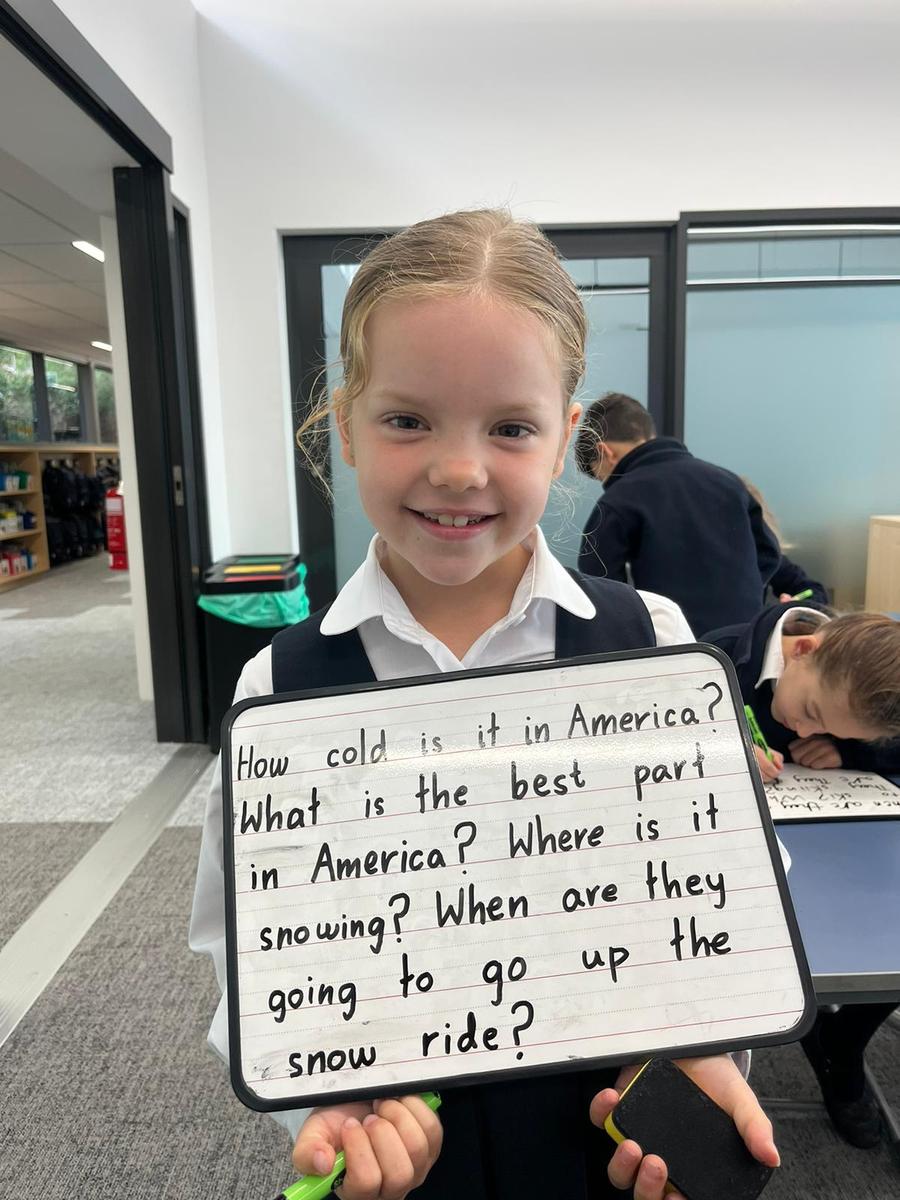 How cold is it in America?
What is the best part
in America? Where is it
snowing? When are they
going to go up the
snow ride?